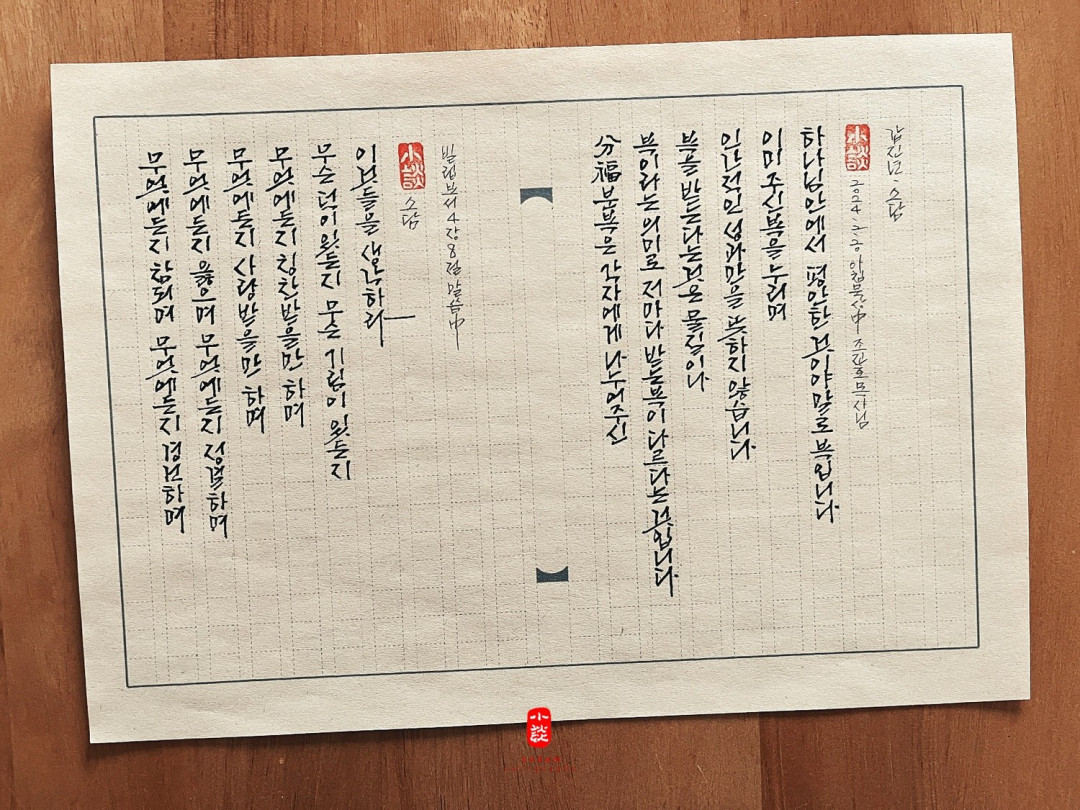 무엇에든지 참되며 무엇에든지 경건하며
무엇에든지 옳으며 무엇에든지 정결하며
무엇에든지 사랑받을만 하며
무엇에든지 칭찬받을만 하며
무슨 덕이 있든지 무슨 기림이 있든지
이것들을 생각하라
小談 소담
빌립보서 4장 8절 말씀中
分福 분복은 각자에게 나누어주신
복이라는 의미로 저마다 받는 복이 다르다는 것입니다
복을 받는다는 것은 물질이나
인간적인 성과만을 뜻하지 않습니다
이미 주신 복을 누리며
하나님안에서 평안한 것이야말로 복입니다
小談 아침묵상中 목사님
소담
小談